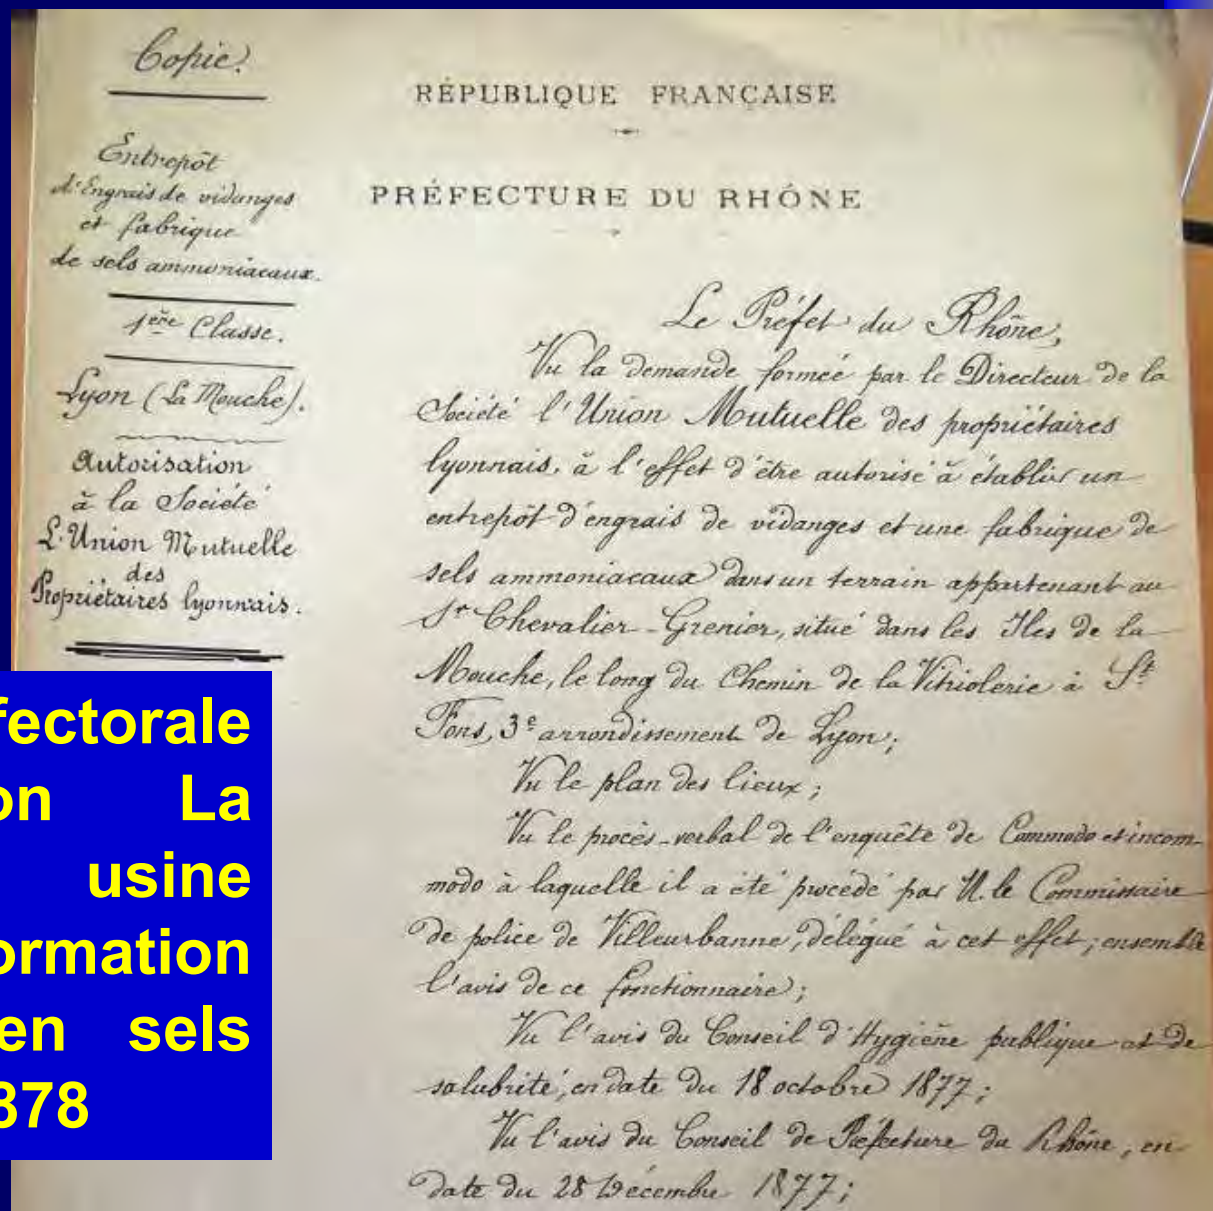 Copie.
Entrepôt
d'Engrais de vidanges
et fabrique
de sels ammoniacaux.
1ère Classe.
Lyon (La Mouche).
Autorisation
à la Société
L'Union Mutuelle
des
Propriétaires lyonnais.
RÉPUBLIQUE FRANÇAISE
PRÉFECTURE DU RHÔNE
Le Préfet du Rhône,
Vu la demande formée par le Directeur de la
Société l'Union Mutuelle des propriétaires
lyonnais, à l'effet d'être autorisé à établir un
entrepôt d'engrais de vidanges et une fabrique de
sels ammoniacaux dans un terrain appartenant au
Sr Chevalier-Grenier, situé dans les Iles de la
Mouche, le long du Chemin de la Vitriolerie à St
Fons, 3e arrondissement de Lyon;
Vu le plan des lieux;
Vu le procès-verbal de l'enquête de Commodo et incom-
modo à laquelle il a été procédé par M. le Commissaire
de police de Villeurbanne, délégué à cet effet; ensemble
l'avis de ce fonctionnaire;
Vu l'avis du Conseil d'Hygiène publique et de
salubrité, en date du 18 octobre 1877;
Vu l'avis du Conseil de Préfecture du Rhône, en
date du 28 Décembre 1877;
fectorale
on La
usine
ormation
en sels
878